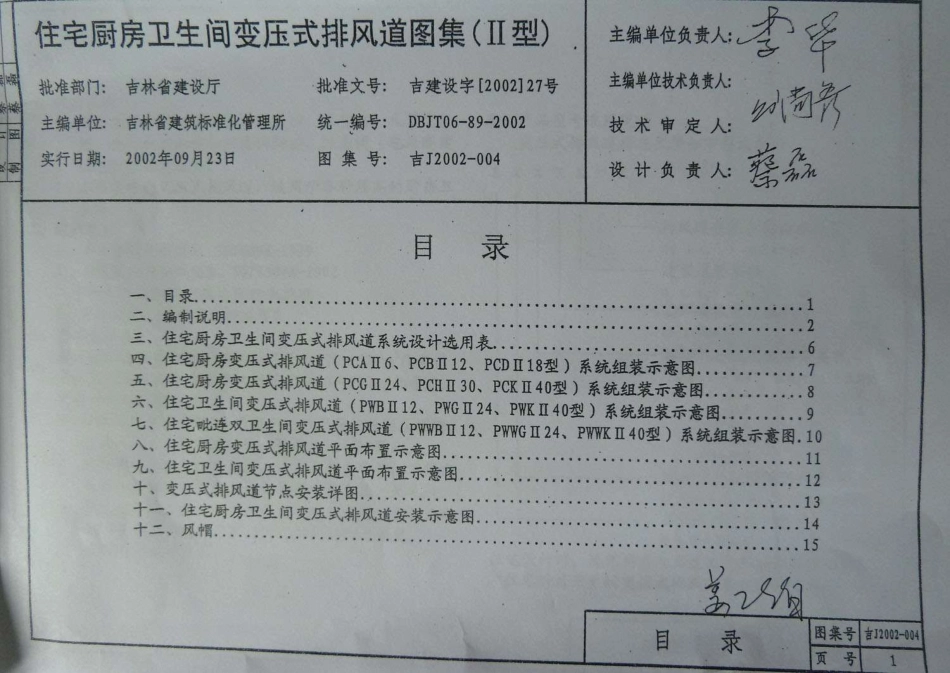 住宅厨房卫生间变压式排风道图集(Ⅱ型)
批准部门: 吉林省建设厅 批准文号: 吉建设字[2002]27号
主编单位: 吉林省建筑标准化管理所 统一编号: DBJT06-89-2002
实行日期: 2002年09月23日 图集号: 吉J2002-004
主编单位负责人: 李华
主编单位技术负责人:
技术审定人:
设计负责人: 蔡磊
目 录
一、目录 1
二、编制说明 2
三、住宅厨房卫生间变压式排风道系统设计选用表 6
四、住宅厨房变压式排风道(PCAⅡ6、PCBⅡ12、PCDⅡ18型)系统组装示意图 7
五、住宅厨房变压式排风道(PCGⅡ24、PCHⅡ30、PCKⅡ40型)系统组装示意图 8
六、住宅卫生间变压式排风道(PWBⅡ12、PWGⅡ24、PWKⅡ40型)系统组装示意图 9
七、住宅毗连双卫生间变压式排风道(PWWBⅡ12、PWWGⅡ24、PWWKⅡ40型)系统组装示意图 10
八、住宅厨房变压式排风道平面布置示意图 11
九、住宅卫生间变压式排风道平面布置示意图 12
十、变压式排风道节点安装详图 13
十一、住宅厨房卫生间变压式排风道安装示意图 14
十二、风帽 15
目 录
图集号 吉J2002-004
页 号 1